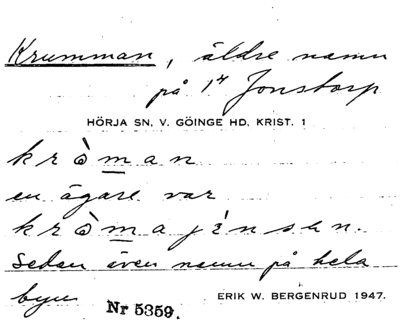 Krumman, äldre namn
på 1/4 Jonstorp
HÖRJA SN, V. GÖINGE HD, KRIST. 1
kròman
en ägare var
kròmajénsen.
Sedan även namn på hela
byn
Nr 5359.
ERIK W. BERGENRUD 1947.